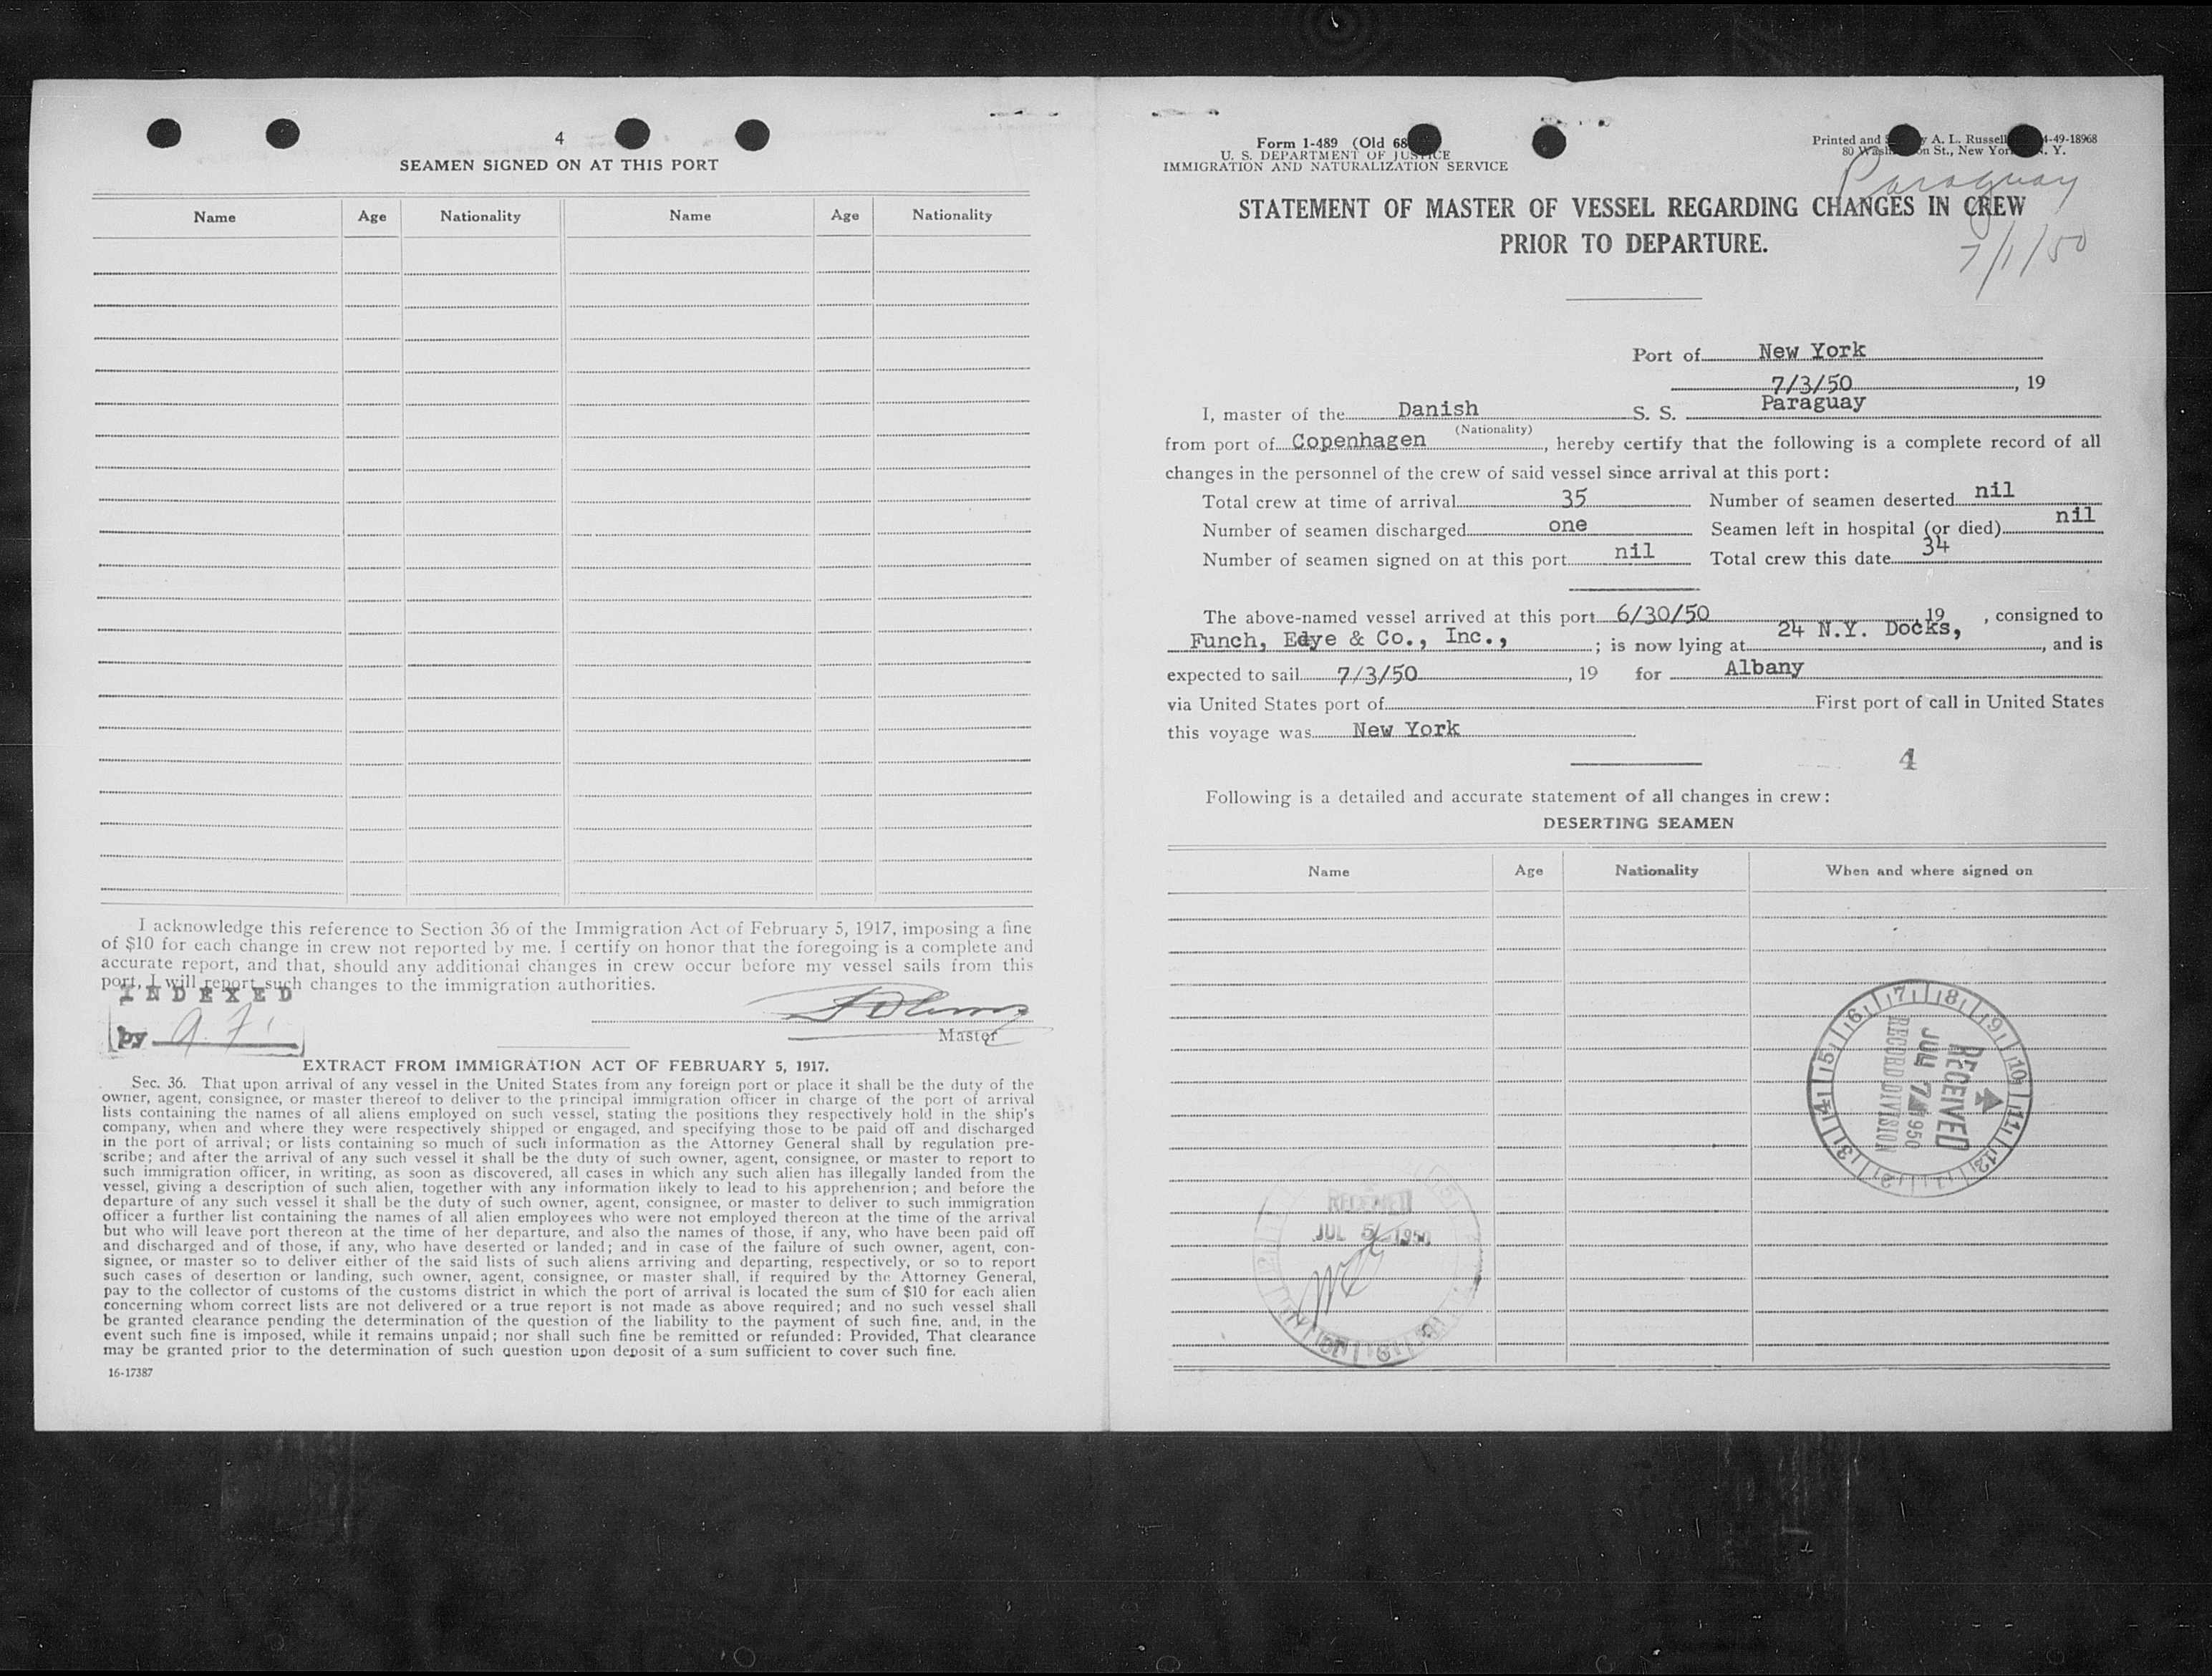 4
SEAMEN SIGNED ON AT THIS PORT
Name Age Nationality Name Age Nationality
I acknowledge this reference to Section 36 of the Immigration Act of February 5, 1917, imposing a fine
of $10 for each change in crew not reported by me. I certify on honor that the foregoing is a complete and
accurate report, and that, should any additional changes in crew occur before my vessel sails from this
port, I will report such changes to the immigration authorities.
INDEXED
by A. F.
Master
EXTRACT FROM IMMIGRATION ACT OF FEBRUARY 5, 1917.
Sec. 36. That upon arrival of any vessel in the United States from any foreign port or place it shall be the duty of the
owner, agent, consignee, or master thereof to deliver to the principal immigration officer in charge of the port of arrival
lists containing the names of all aliens employed on such vessel, stating the positions they respectively hold in the ship's
company, when and where they were respectively shipped or engaged, and specifying those to be paid off and discharged
in the port of arrival; or lists containing so much of such information as the Attorney General shall by regulation pre-
scribe; and after the arrival of any such vessel it shall be the duty of such owner, agent, consignee, or master to report to
such immigration officer, in writing, as soon as discovered, all cases in which any such alien has illegally landed from the
vessel, giving a description of such alien, together with any information likely to lead to his apprehension; and before the
departure of any such vessel it shall be the duty of such owner, agent, consignee, or master to deliver to such immigration
officer a further list containing the names of all alien employees who were not employed thereon at the time of the arrival
but who will leave port thereon at the time of her departure, and also the names of those, if any, who have been paid off
and discharged and of those, if any, who have deserted or landed; and in case of the failure of such owner, agent, con-
signee, or master so to deliver either of the said lists of such aliens arriving and departing, respectively, or so to report
such cases of desertion or landing, such owner, agent, consignee, or master shall, if required by the Attorney General,
pay to the collector of customs of the customs district in which the port of arrival is located the sum of $10 for each alien
concerning whom correct lists are not delivered or a true report is not made as above required; and no such vessel shall
be granted clearance pending the determination of the question of the liability to the payment of such fine, and, in the
event such fine is imposed, while it remains unpaid; nor shall such fine be remitted or refunded: Provided, That clearance
may be granted prior to the determination of such question upon deposit of a sum sufficient to cover such fine.
16-17387
Form 1-489 (Old 68
U. S. DEPARTMENT OF JUSTICE
IMMIGRATION AND NATURALIZATION SERVICE
Printed and A. L. Russell 4-49-18968
80 Wash on St., New York N. Y.
Paraguay
STATEMENT OF MASTER OF VESSEL REGARDING CHANGES IN CREW
PRIOR TO DEPARTURE.
7/1/50
Port of New York
7/3/50, 19
I, master of the Danish S. S. Paraguay
(Nationality)
from port of Copenhagen, hereby certify that the following is a complete record of all
changes in the personnel of the crew of said vessel since arrival at this port:
Total crew at time of arrival 35 Number of seamen deserted nil
Number of seamen discharged one Seamen left in hospital (or died) nil
Number of seamen signed on at this port nil Total crew this date 34
The above-named vessel arrived at this port 6/30/50, 19 , consigned to
Funch, Edye & Co., Inc., ; is now lying at 24 N.Y. Docks, , and is
expected to sail 7/3/50, 19 for Albany
via United States port of First port of call in United States
this voyage was New York
4
Following is a detailed and accurate statement of all changes in crew:
DESERTING SEAMEN
Name Age Nationality When and where signed on
RECEIVED
JUL 7 1950
RECORD DIVISION
7 8 9 10 11 12 1 2 3 4 5 6
RECEIVED
JUL 5 1950